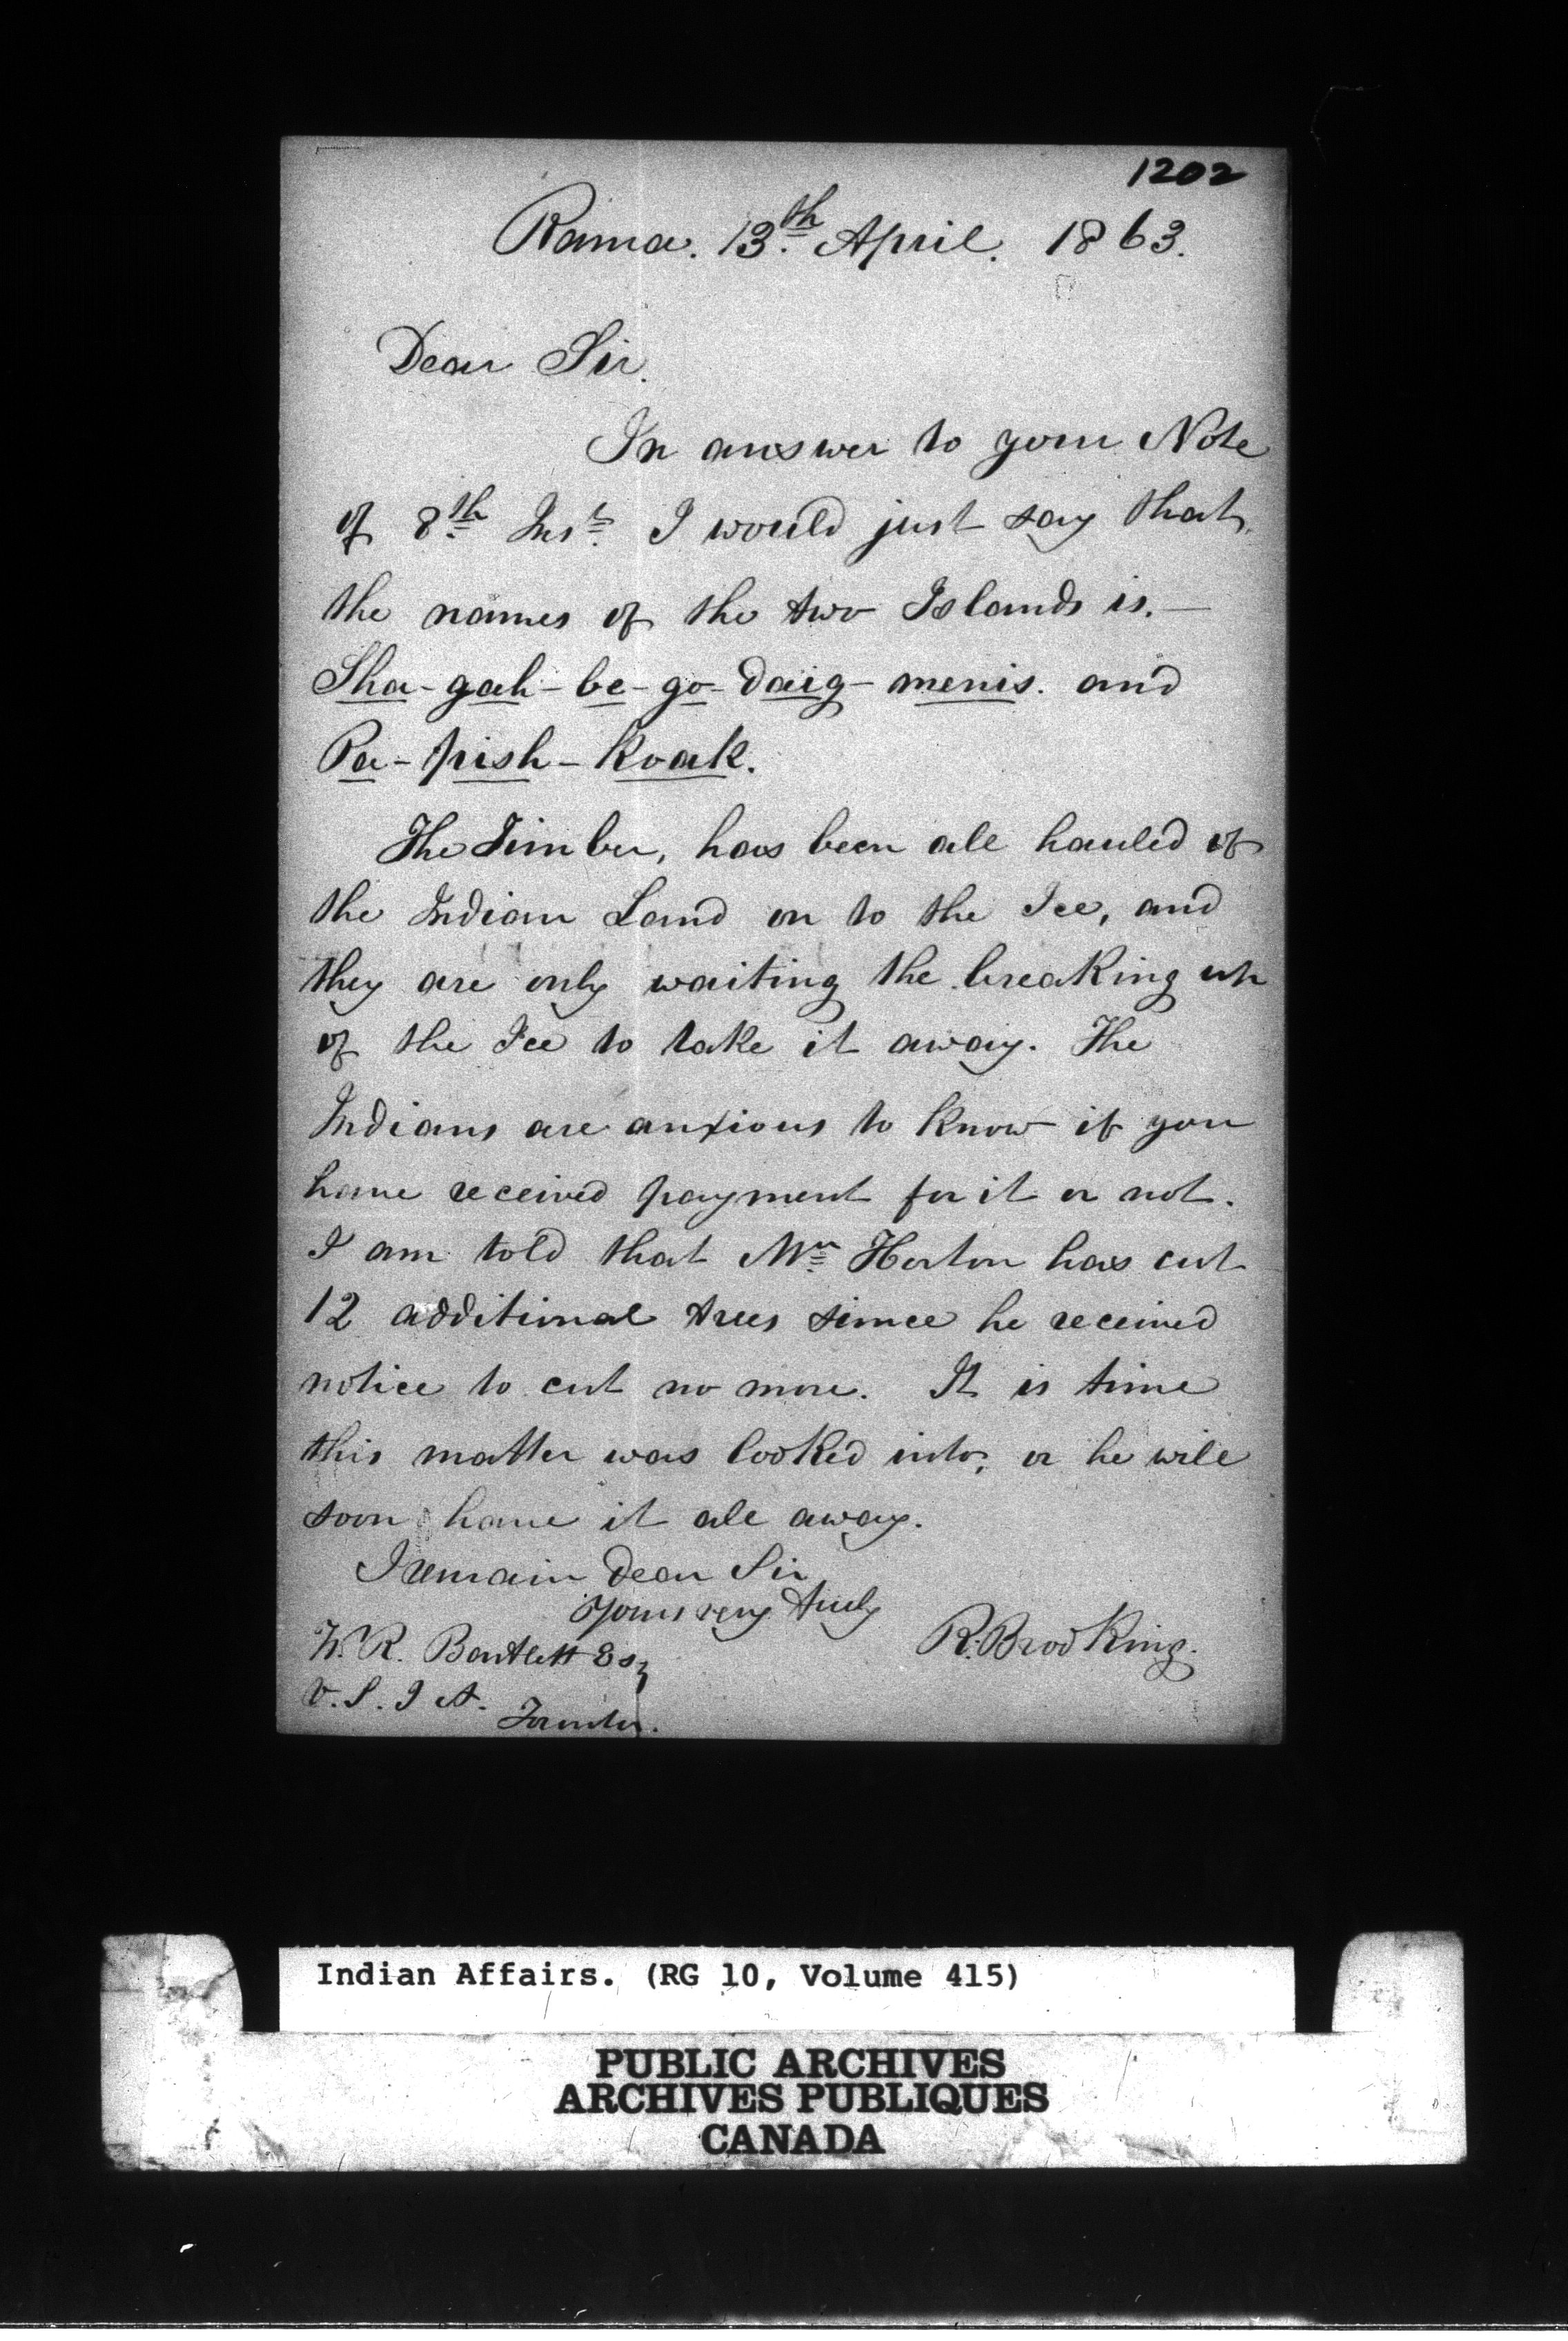 1202
Rama. 13th April. 1863.
Dear Sir.
In answer to your Note
of 8th Inst. I would just say that
the names of the two Islands is.—
Sha-gah-be-go-daig-menis. and
Pa-pish-koak.
The Timber, has been all hauled of
the Indian Land on to the Ice, and
they are only waiting the breaking up
of the Ice to take it away. The
Indians are anxious to know if you
have received payment for it or not.
I am told that Mr Horton has cut
12 additional trees since he received
notice to cut no more. It is time
this matter was looked into, or he will
soon have it all away.
I remain Dear Sir
Yours very truly
R. Brooking.
W. R. Bartlett Esq
V. S. I A.
Toronto.
Indian Affairs. (RG 10, Volume 415)
PUBLIC ARCHIVES
ARCHIVES PUBLIQUES
CANADA